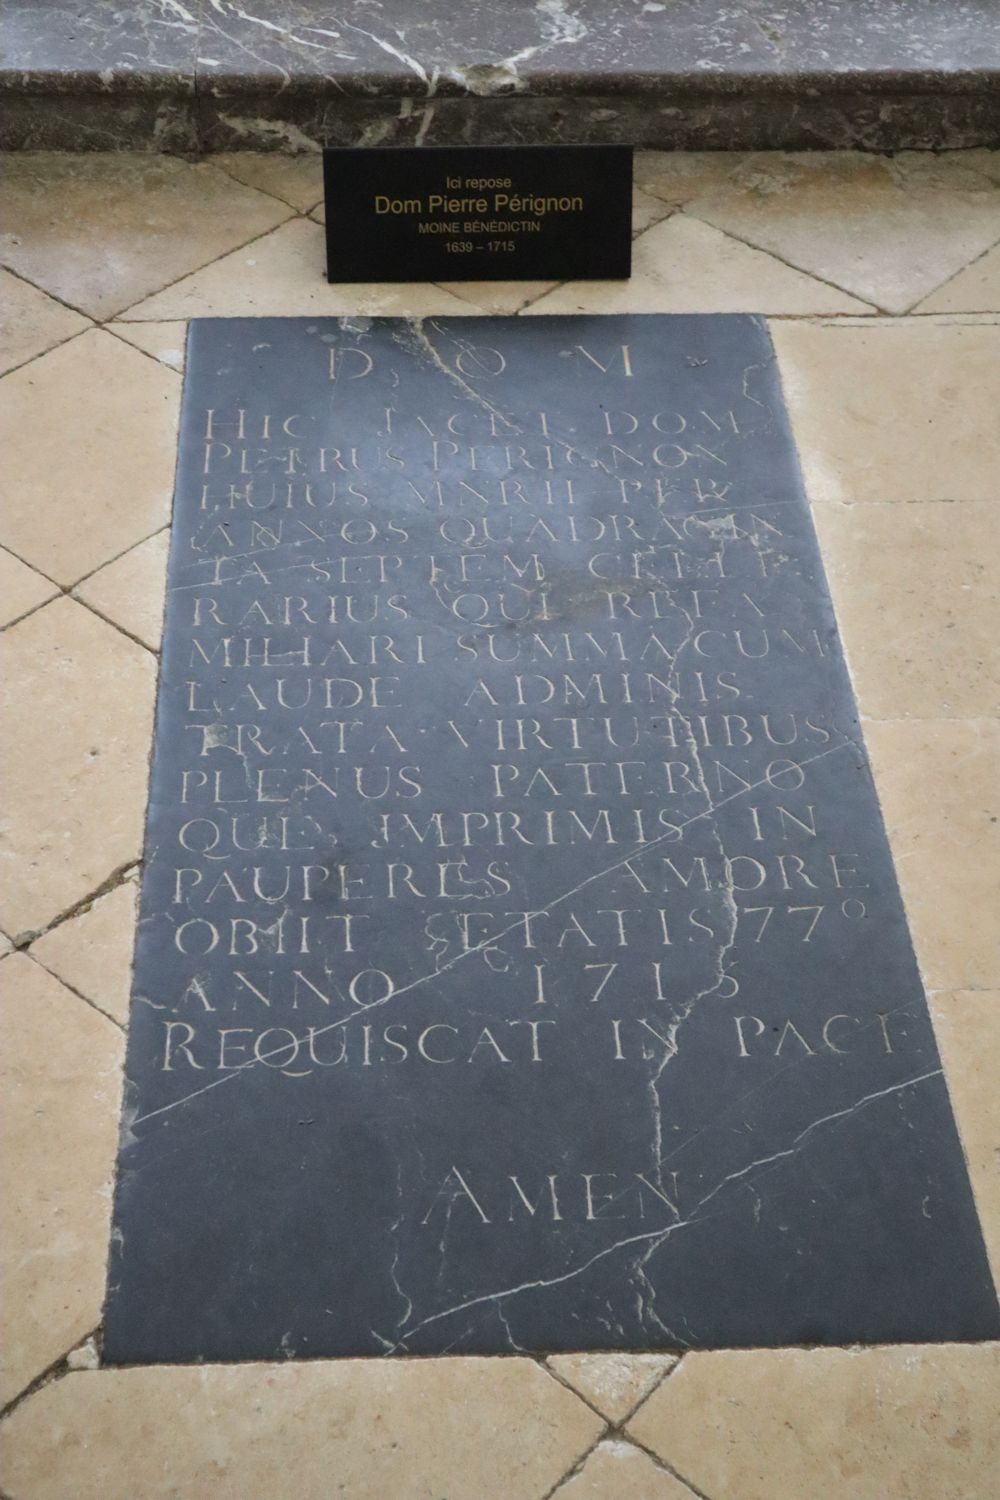 Ici repose
Dom Pierre Pérignon
MOINE BÉNÉDICTIN
1639 – 1715
D. O M
HIC JACET DOM
PETRUS PERIGNON
HUIUS MNRII PER
ANNOS QUADRAGIN
TA SEPTEM CELLE
RARIUS QUI RE FA
MILIARI SUMMA CUM
LAUDE ADMINIS
TRATA VIRTUTIBUS
PLENUS PATERNO
QUE JMPRIMIS IN
PAUPERES AMORE
OBIIT ÆTATIS 77º
ANNO 1715
REQUISCAT IN PACE
AMEN